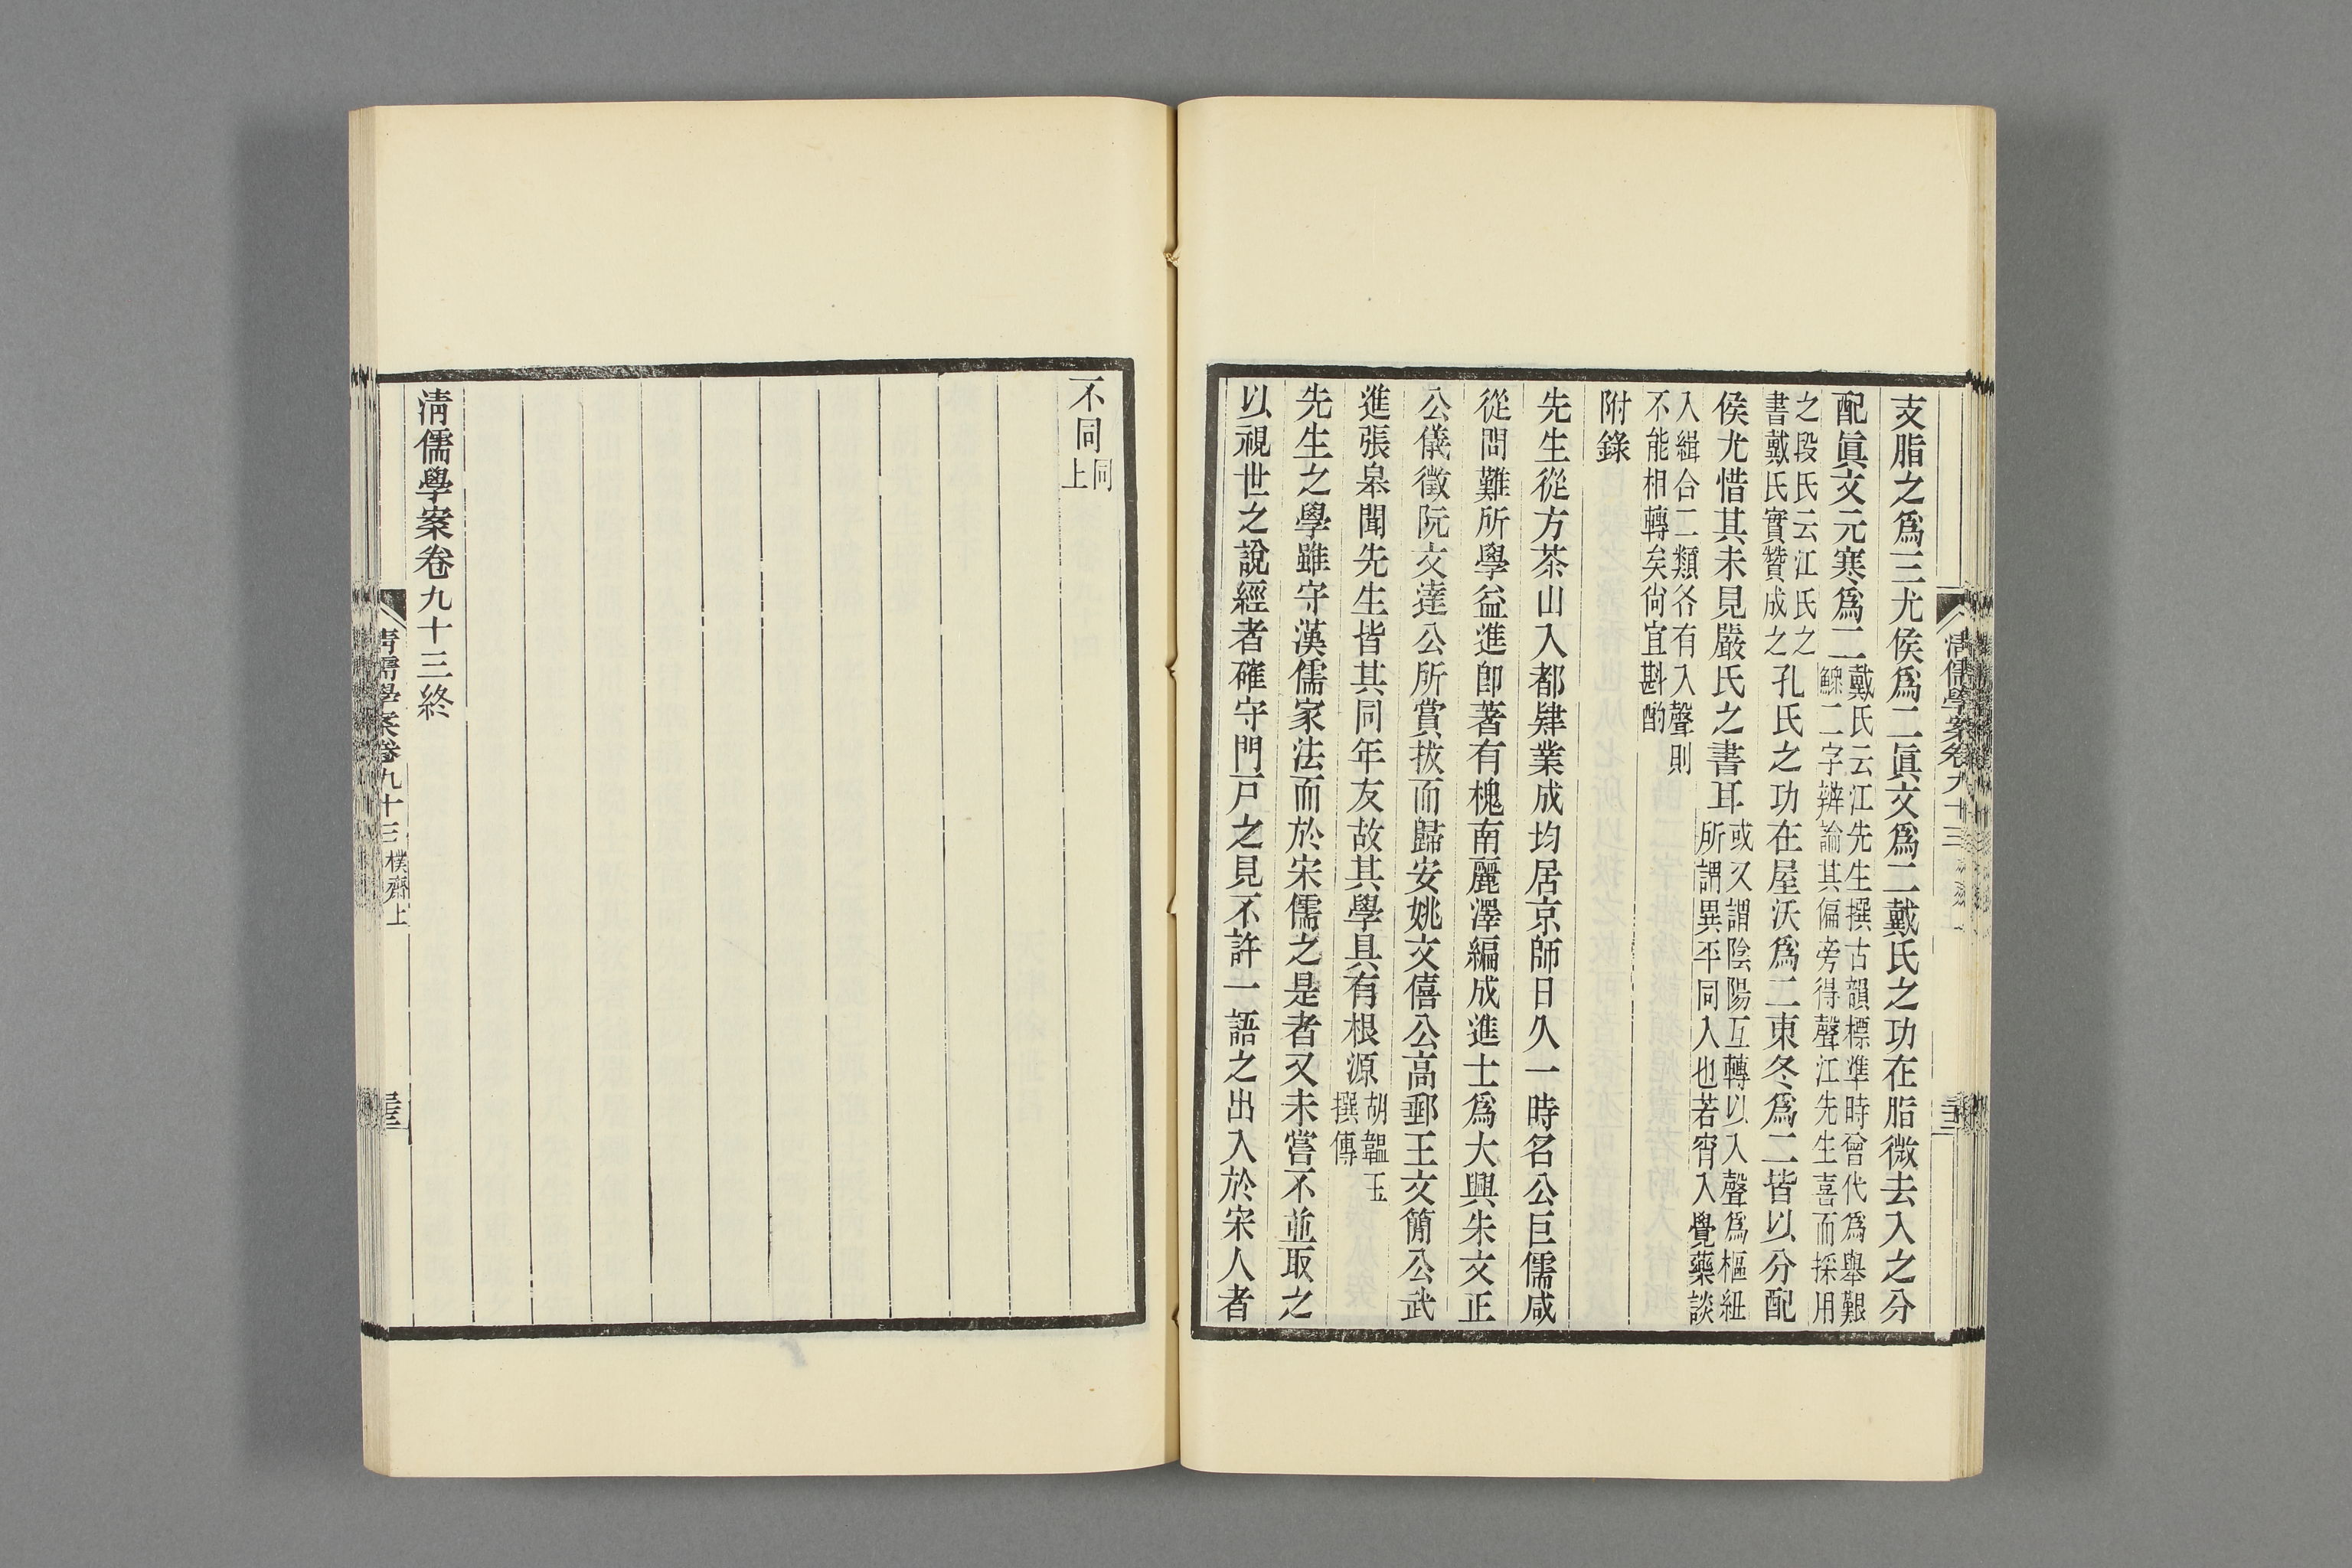 支脂之爲三尤侯爲二眞文爲二戴氏之功在脂微去入之分
配眞文元寒爲二戴氏云江先生撰古韻標準時曾代爲舉艱鰥二字辨論其偏旁得聲江先生喜而採用
之段氏云江氏之書戴氏實贊成之孔氏之功在屋沃爲二東冬爲二皆以分配
侯尤惜其未見嚴氏之書耳或又謂陰陽互轉以入聲爲樞紐所謂異平同入也若宵入覺藥談
入緝合二類各有入聲則不能相轉矣尙宜斟酌
附錄
先生從方茶山入都肄業成均居京師日久一時名公巨儒咸
從問難所學益進卽著有槐南麗澤編成進士爲大興朱文正
公儀徵阮文達公所賞拔而歸安姚文僖公高郵王文簡公武
進張皋聞先生皆其同年友故其學具有根源胡韞玉撰傳
先生之學雖守漢儒家法而於宋儒之是者又未嘗不並取之
以視世之說經者確守門戶之見不許一語之出入於宋人者
清儒學案卷九十三
不同同上
清儒學案卷九十三終
清儒學案卷九十三 樸齋上